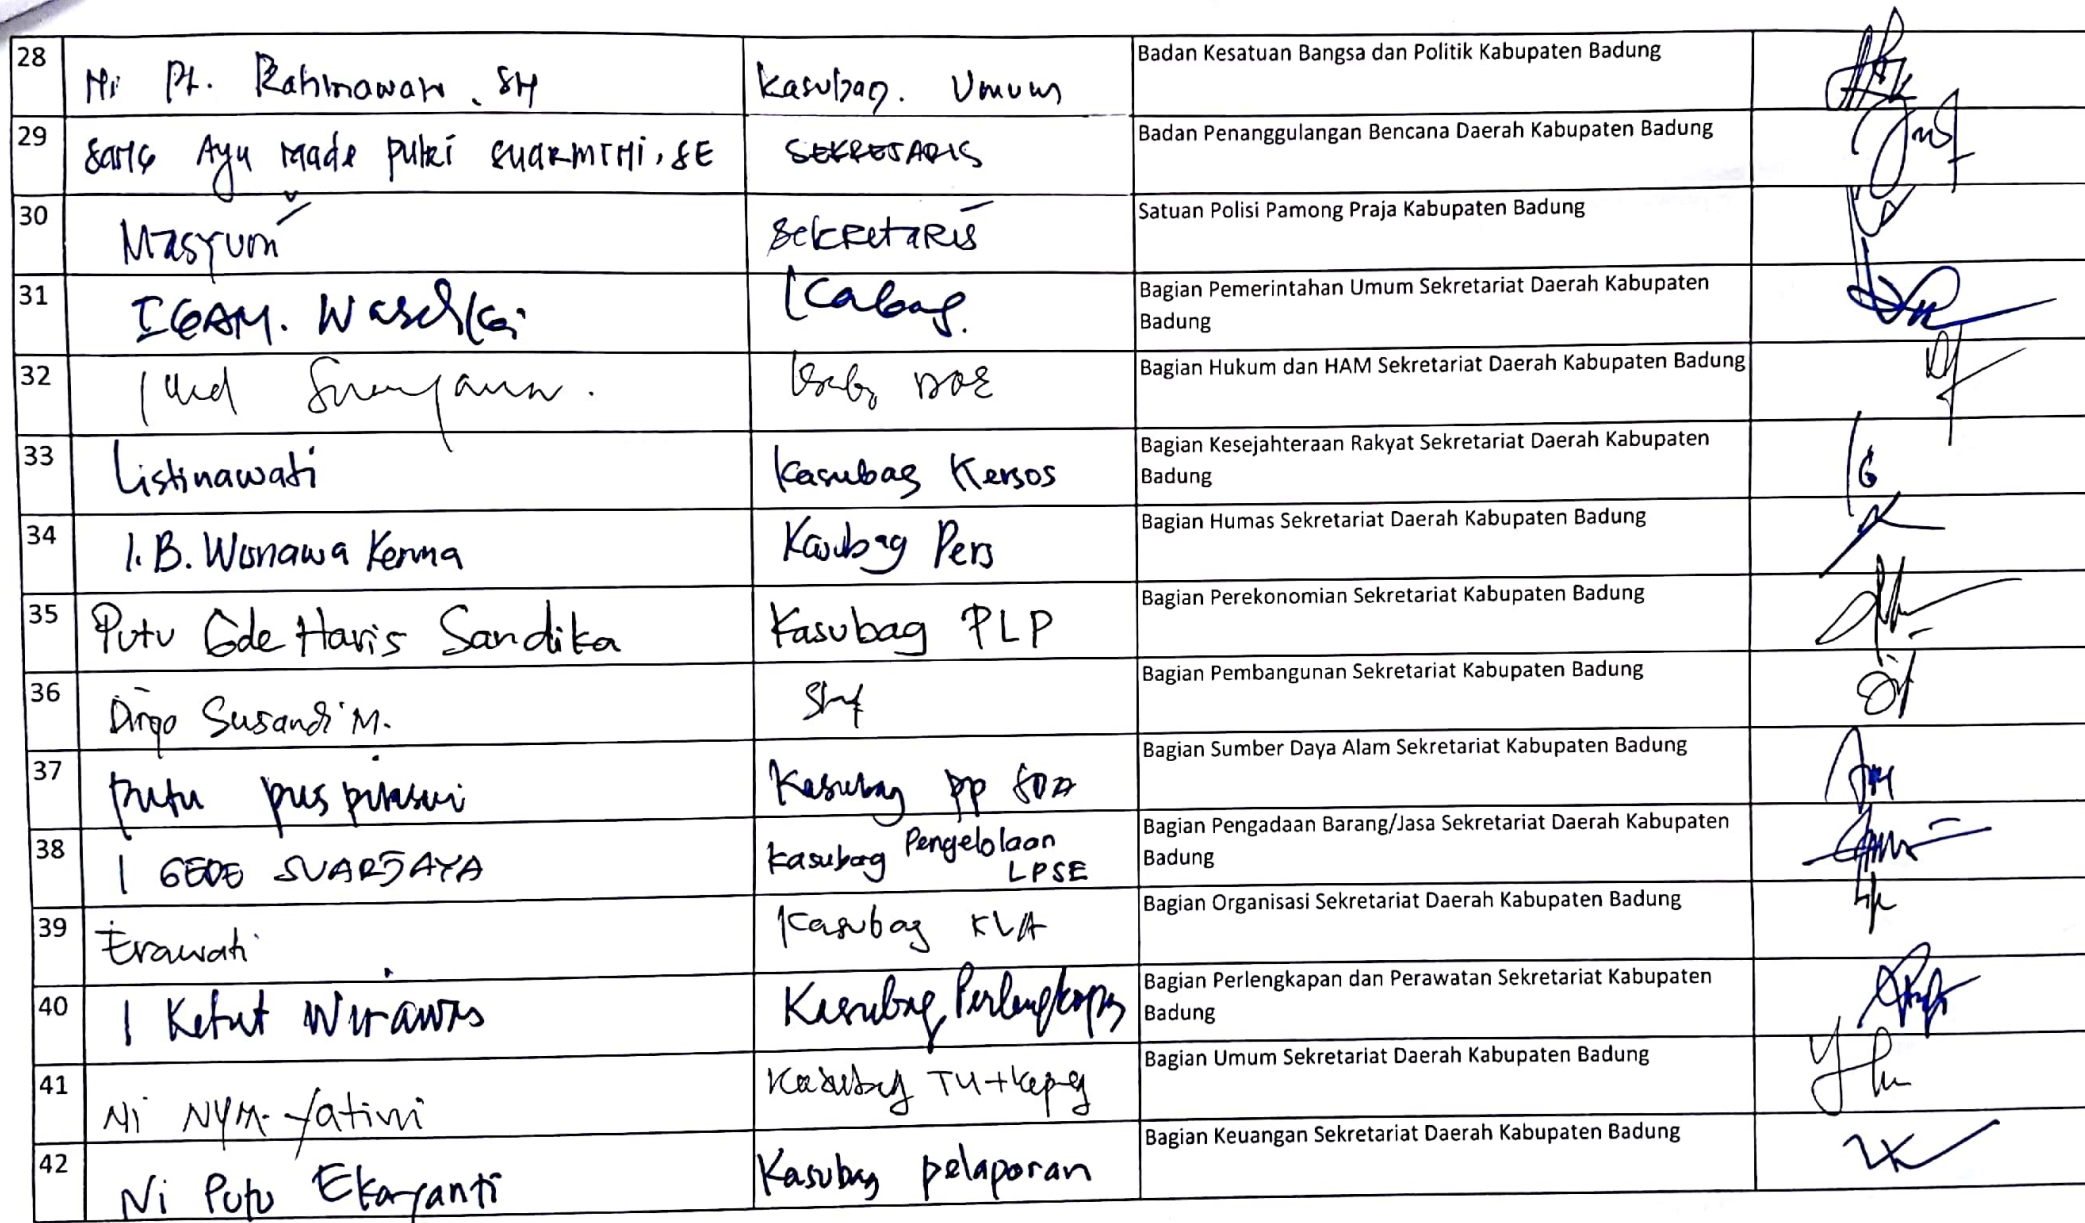 28 Ni Pt. Rahmawati, SH Kasubag. Umum Badan Kesatuan Bangsa dan Politik Kabupaten Badung
29 Sang Ayu Made Putri Suarmini, SE SEKRETARIS Badan Penanggulangan Bencana Daerah Kabupaten Badung
30 Masyuni Sekretaris Satuan Polisi Pamong Praja Kabupaten Badung
31 IGAM. Kabag. Bagian Pemerintahan Umum Sekretariat Daerah Kabupaten
Badung
32 I Bagian Hukum dan HAM Sekretariat Daerah Kabupaten Badung
33 Listinawati Kasubag Kersos Bagian Kesejahteraan Rakyat Sekretariat Daerah Kabupaten
Badung
34 I.B. Kasubag Pers Bagian Humas Sekretariat Daerah Kabupaten Badung
35 Putu Gde Haris Sandika Kasubag PLP Bagian Perekonomian Sekretariat Kabupaten Badung
36 Susandi M. Staf Bagian Pembangunan Sekretariat Kabupaten Badung
37 Putu Puspitasari Kasubag PP SDA Bagian Sumber Daya Alam Sekretariat Kabupaten Badung
38 I GEDE SUARJAYA Kasubag Pengelolaan LPSE Bagian Pengadaan Barang/Jasa Sekretariat Daerah Kabupaten
Badung
39 Erawati Kasubag Bagian Organisasi Sekretariat Daerah Kabupaten Badung
40 I Ketut Wirawan Kasubag Perlengkapan Bagian Perlengkapan dan Perawatan Sekretariat Kabupaten
Badung
41 Ni NYM. Yatini Kasubag TU+Kepeg Bagian Umum Sekretariat Daerah Kabupaten Badung
42 Ni Putu Ekayanti Kasubag pelaporan Bagian Keuangan Sekretariat Daerah Kabupaten Badung